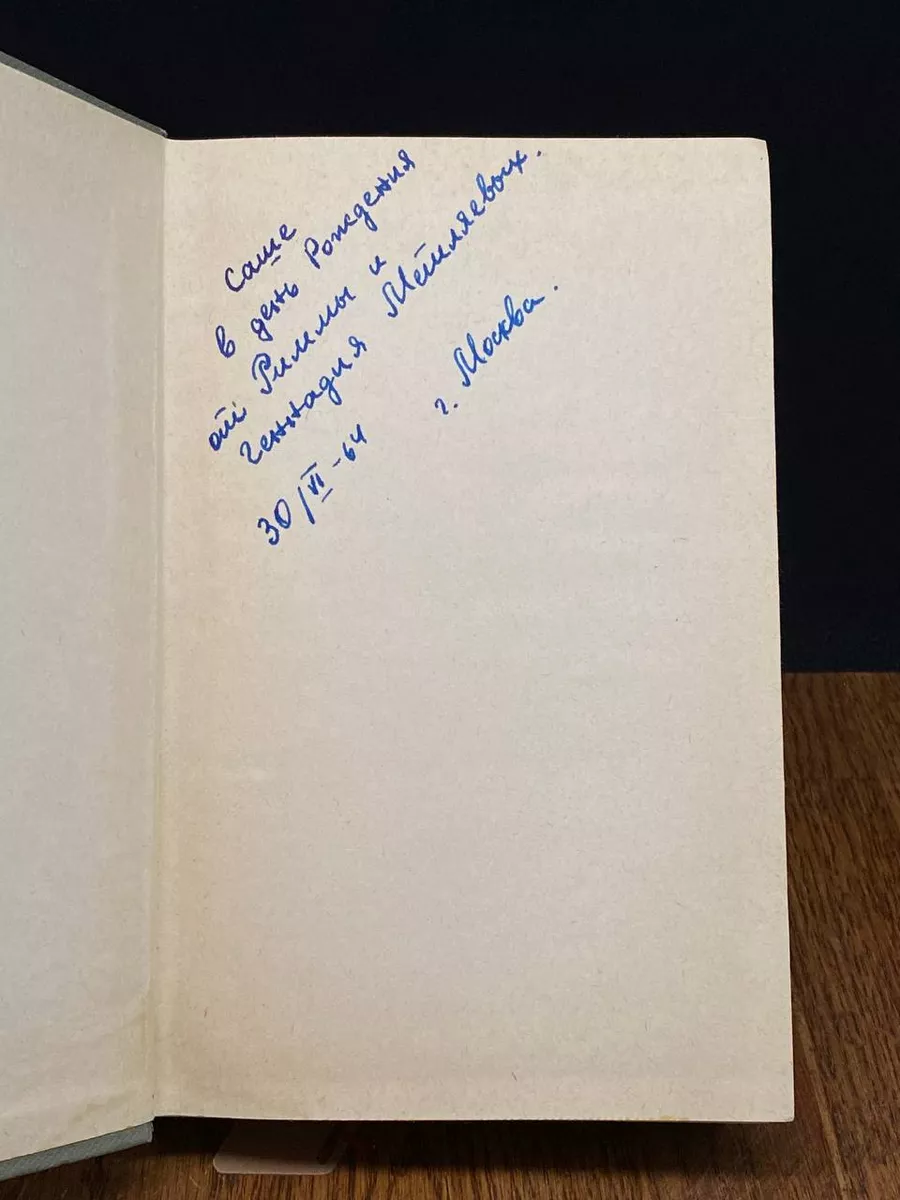 Саше
в день Рождения
от Риммы и
Геннадия Метляевых.
30/VI-64 г. Москва.